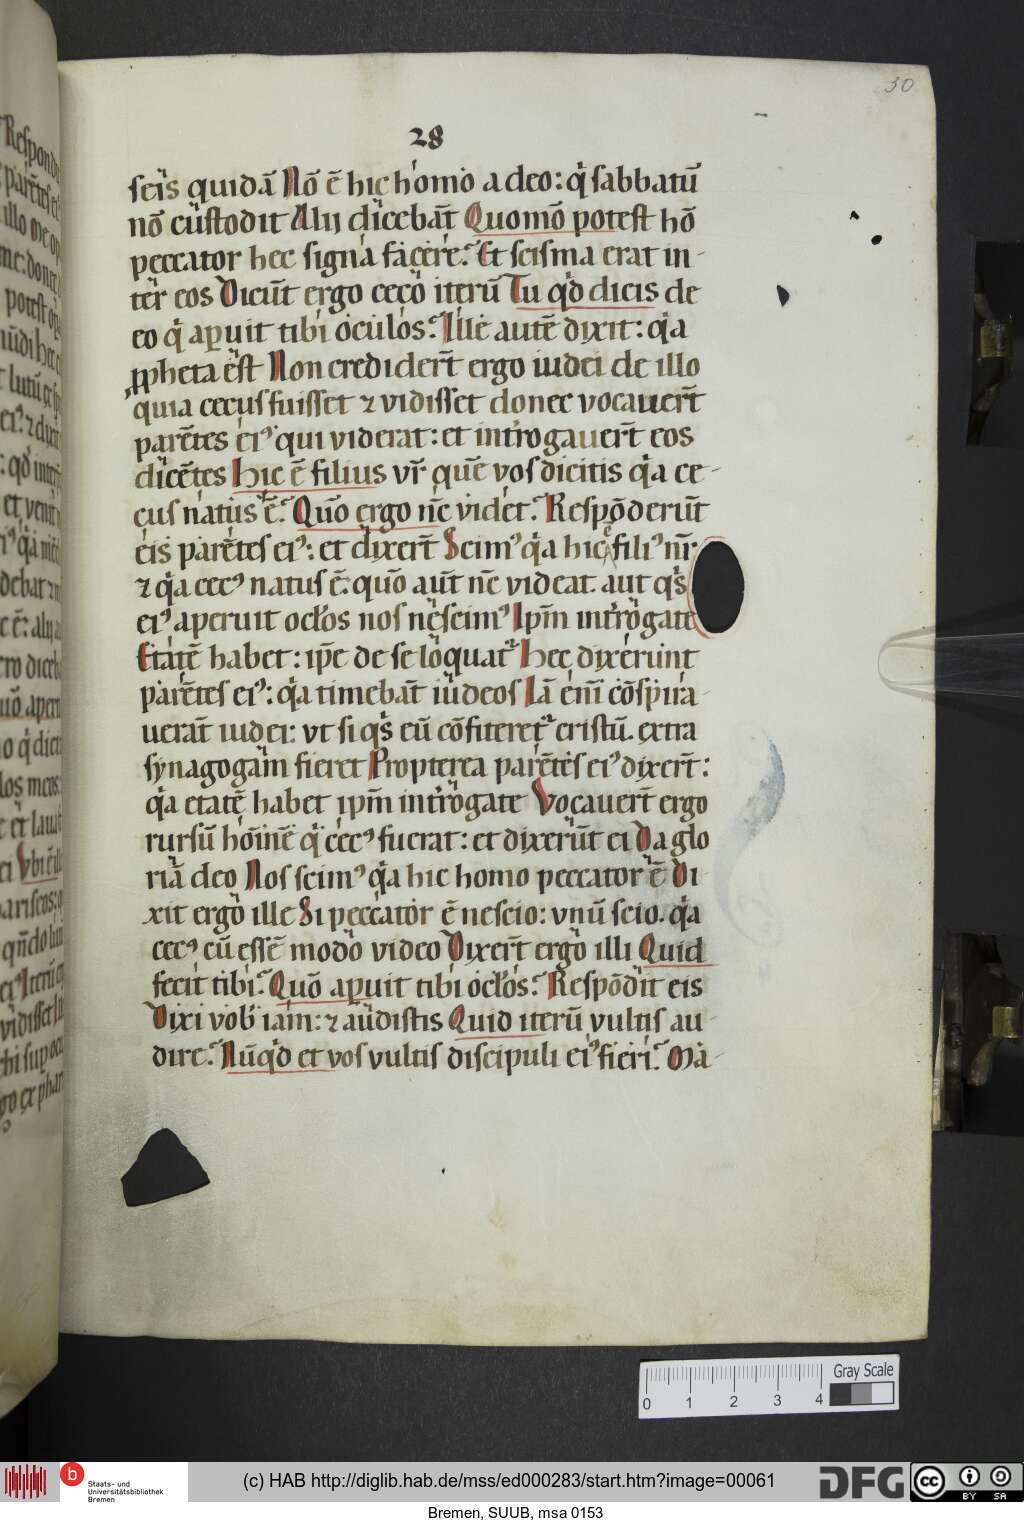 30
28
sci̾s quidā Nō ē hic homo a deo: q̍ sabbatū
nō cūstodit Alij dicebāt Quomō potest hō
peccator hec signa facere? Et scisma erat in-
ter eos Dicūt ergo ceco iterū Tu qͥd dicis de
eo q̍ aꝑuit tibi oculos? Ille autē dixit: qͥa
ꝓpheta est Non credidert̄ ergo iudei de illo
quia cecus fuisset ⁊ vidisset donec vocauert̄
parētes eiꝰ qui viderat: et int̾rogauert̄ eos
dicētes Hic ē filius vr̄ quē vos dicitis qͥa ce-
cus natus ē? Quō ergo nc̄ videt? Respōderūt
eis parētes eiꝰ: et dixert̄ Scimꝰ qͥa hic ē filiꝰ nr̄
⁊ qͥa cecꝰ natus ē: quō aut̄ nc̄ videat. aut qͥs
eiꝰ aperuit ocłos nos nescimꝰ Ipm̄ int̾rogate
Etatē habet: ip̄e de se loquat᷑ Hec dixerunt
parētes eiꝰ: qͥa timebāt iudeos Iā eni̅ cōspira-
uerāt iudei: vt si qͥs eū cōfiteret᷑ cristū. extra
synagogam fieret Propterea parētes eiꝰ dixert̄:
qͥa etatē habet ipm̄ int̾rogate Vocauert̄ ergo
rursū hoīnē q̍ cecꝰ fuerat: et dixerūt ei Da glo
riā deo Nos scimꝰ qͥa hic homo peccator ē Di
xit ergo ille Si peccator ē nescio: vnū scio. qͥa
cecꝰ cū essē modo video Dixert̄ ergo illi Quid
fecit tibi? Quō aꝑuit tibi ocłos? Respōdit eis
Dixi vob̾ iam: ⁊ audistis Quid iterū vultis au-
dire? Nūqͥd et vos vultis discipuli eiꝰ fieri? Ma-
Gray Scale
0 1 2 3 4
b
Staats- und
Universitätsbibliothek
Bremen
(c) HAB http://diglib.hab.de/mss/ed000283/start.htm?image=00061
DFG
cc
BY SA
Bremen, SUUB, msa 0153